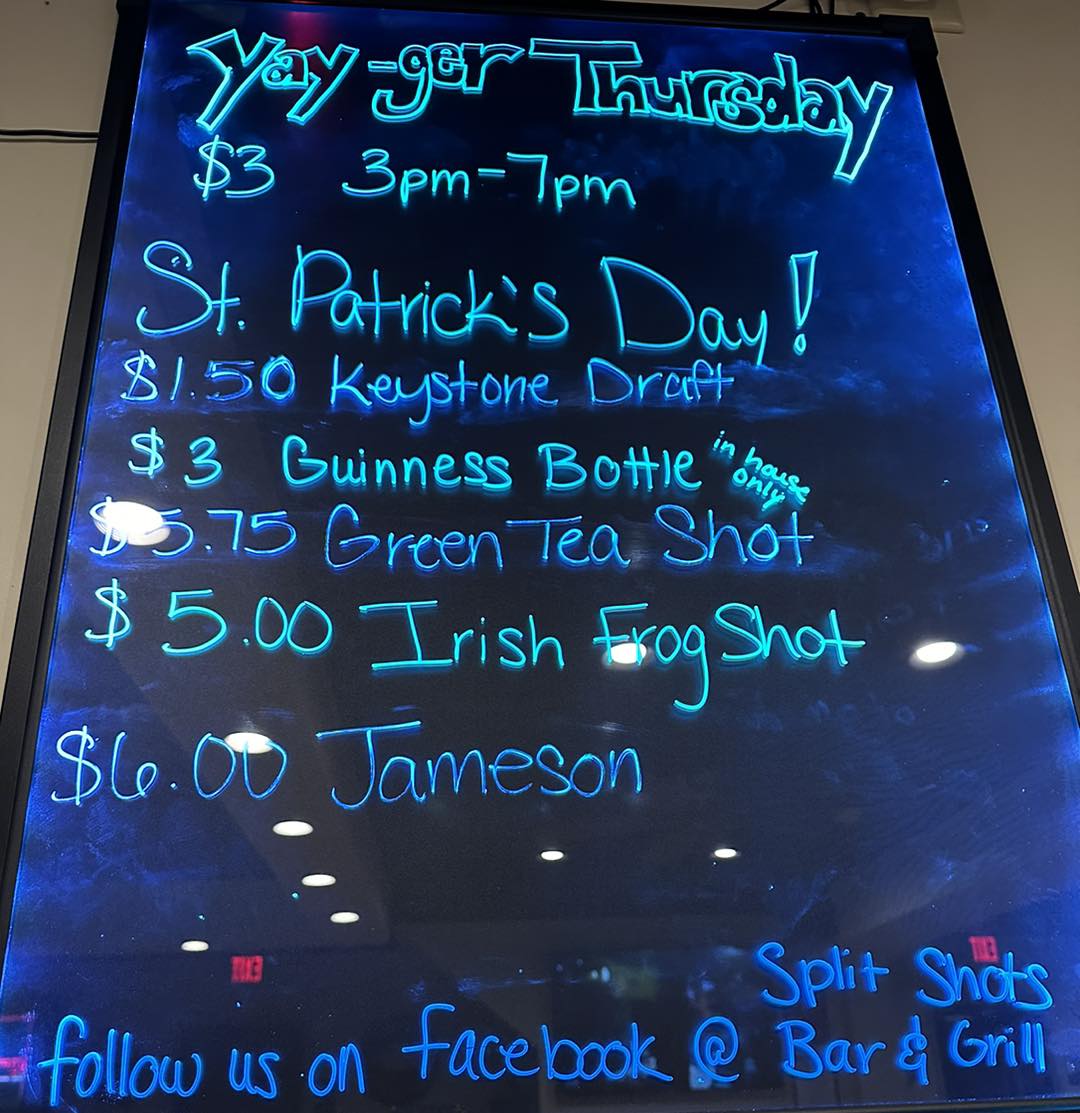 Yay-ger Thursday
$3 3pm-7pm
St. Patrick's Day!
$1.50 Keystone Draft
$3 Guinness Bottle in house only
$5.75 Green Tea Shot
$5.00 Irish Frog Shot
$6.00 Jameson
Split Shots
follow us on facebook @ Bar & Grill